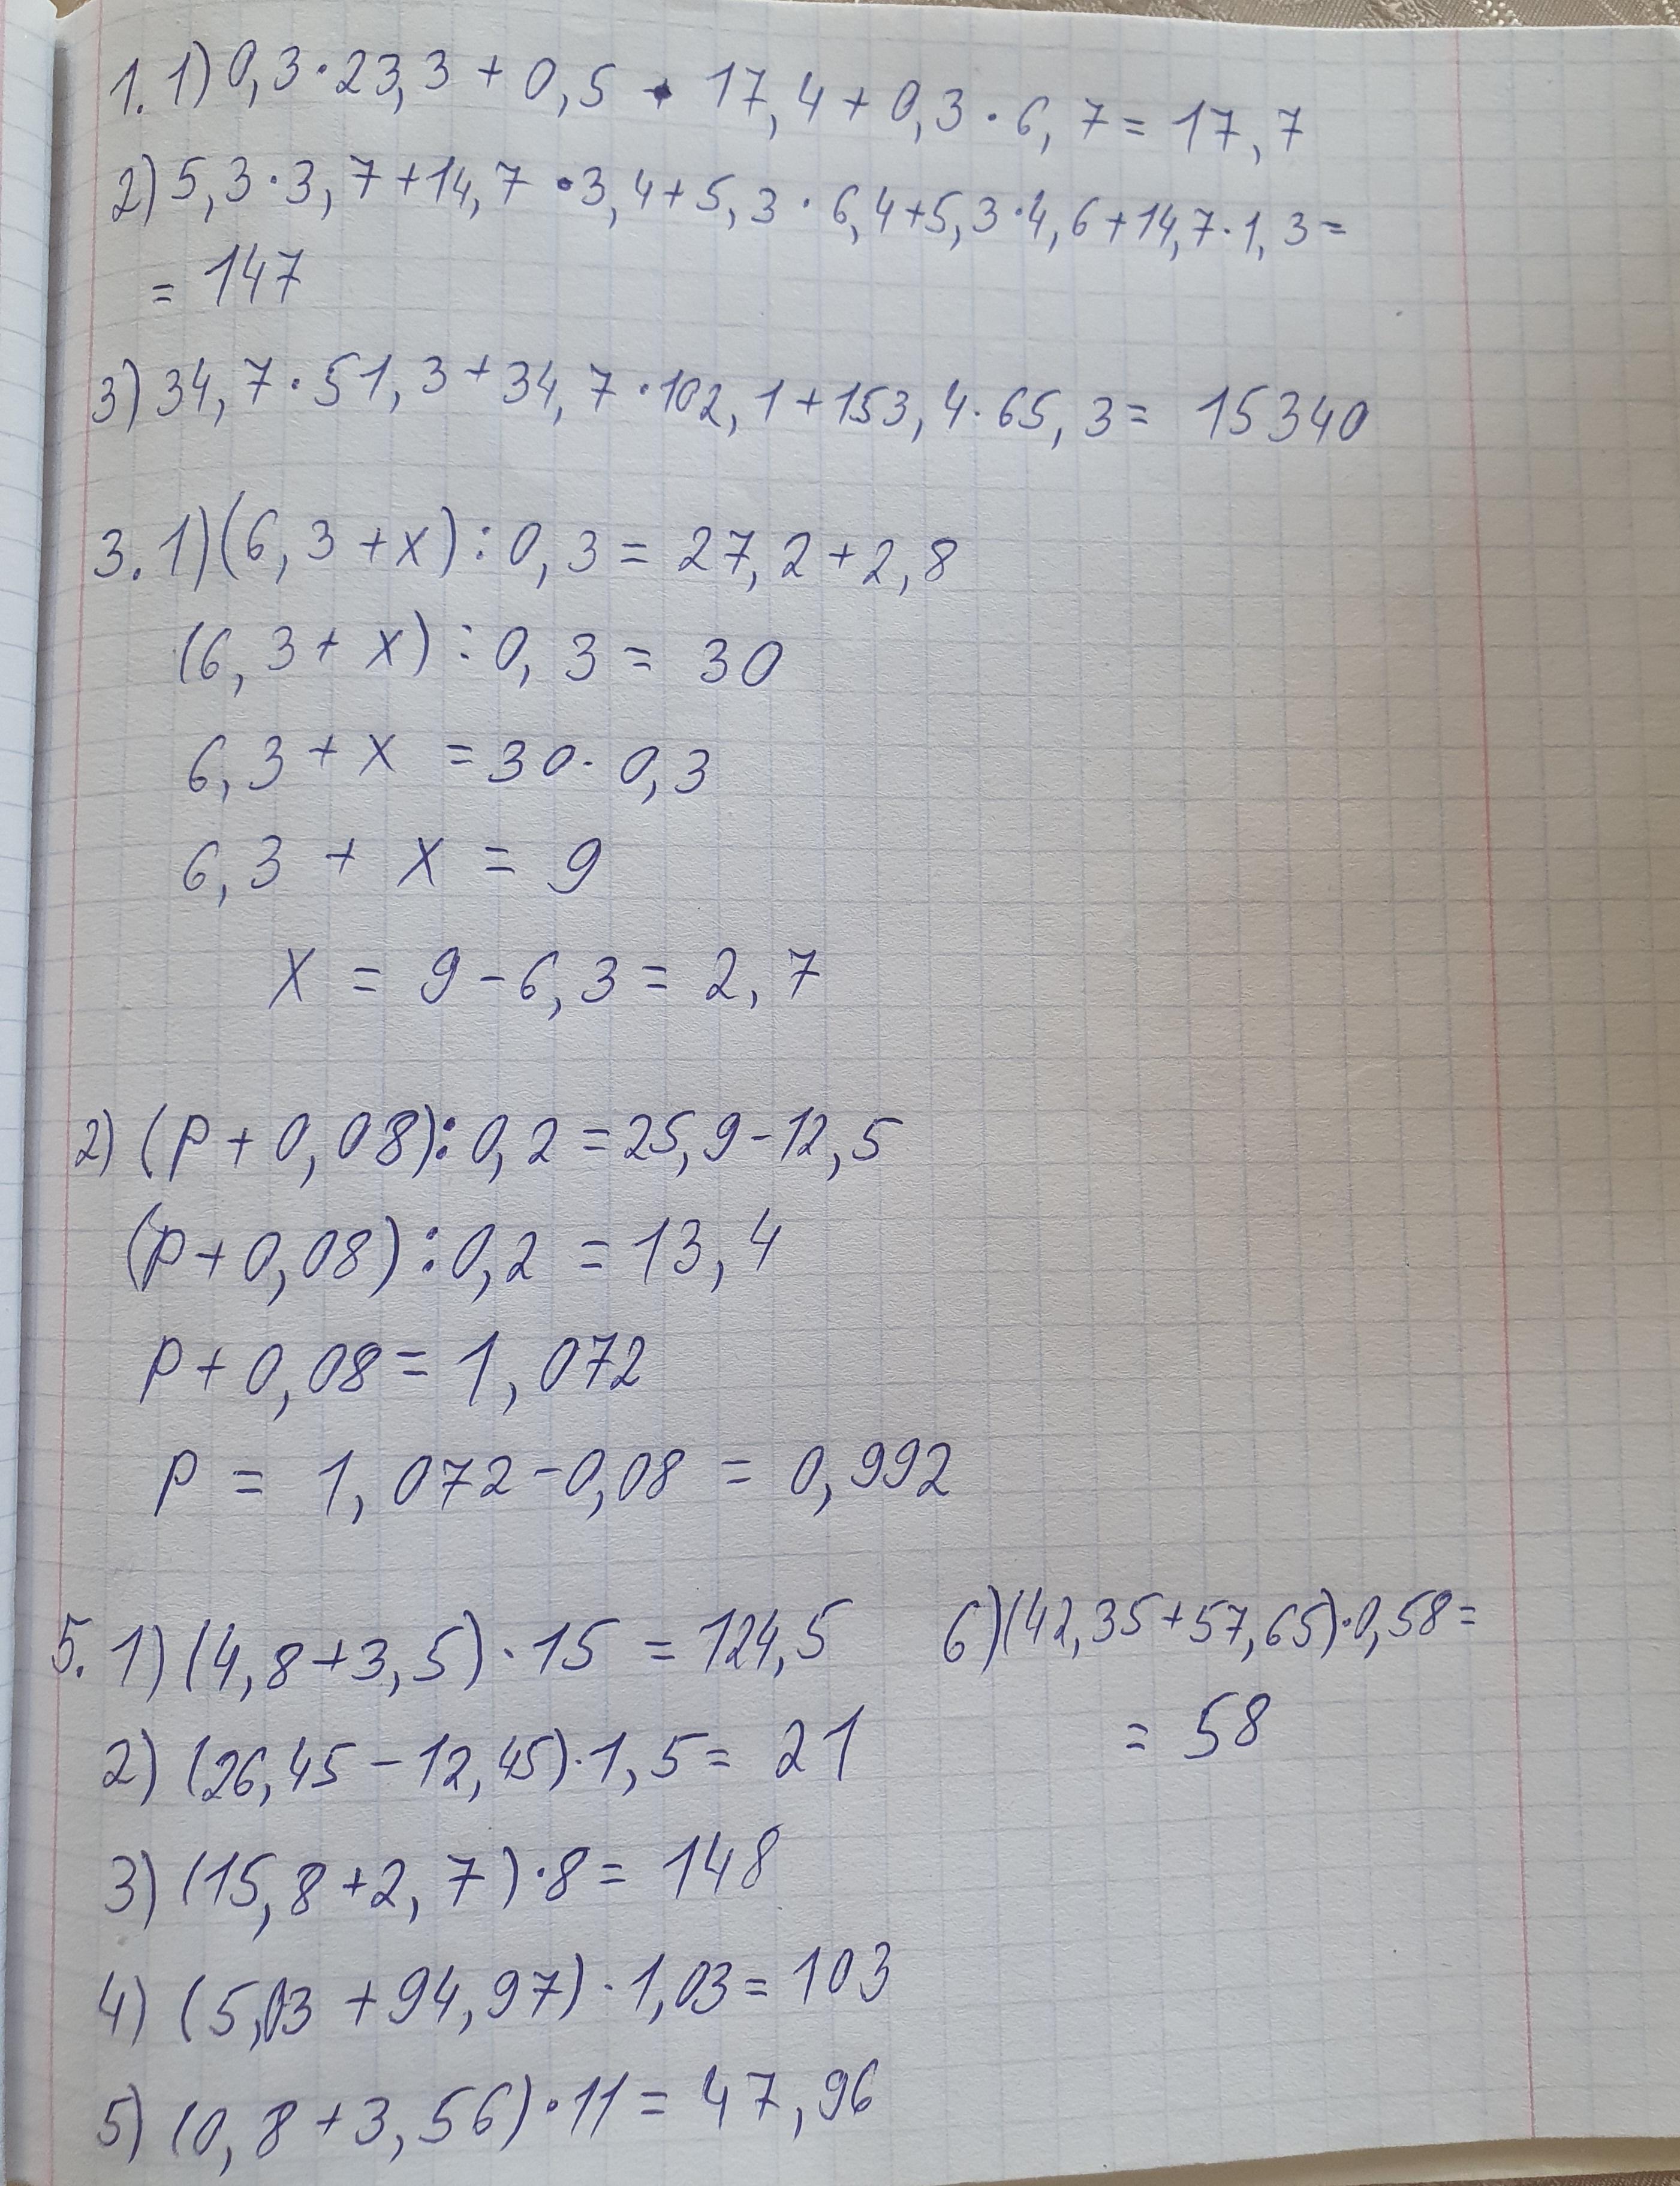 1. 1) 0,3·23,3 + 0,5 · 17,4 + 0,3 · 6,7 = 17,7
2) 5,3·3,7+14,7·3,4+5,3·6,4+5,3·4,6+14,7·1,3=
= 147
3) 34,7·51,3+34,7·102,1+153,4·65,3= 15340
3. 1) (6,3+x):0,3=27,2+2,8
(6,3+x):0,3= 30
6,3+x =30·0,3
6,3 + x = 9
x = 9-6,3=2,7
2) (p+0,08):0,2=25,9-12,5
(p+0,08):0,2=13,4
p+0,08=1,072
p = 1,072-0,08 = 0,992
5. 1) (4,8+3,5)·15 =124,5
2) (26,45-12,45)·1,5= 21
3) (15,8+2,7)·8= 148
4) (5,03+94,97)·1,03=103
5) (0,8+3,56)·11= 47,96
6) (42,35+57,65)·0,58=
= 58